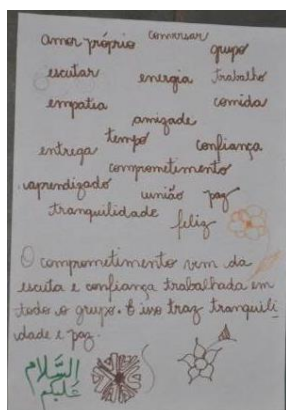 conversar
amor próprio grupo
escutar energia Trabalho
empatia comida
amizade
entrega tempo confiança
comprometimento
aprendizado união paz
tranquilidade
feliz
O comprometimento vem da
escuta e confiança trabalhada em
todo o grupo. E isso traz tranquili-
dade e paz.
السَّلَام
عَلَيْكُم